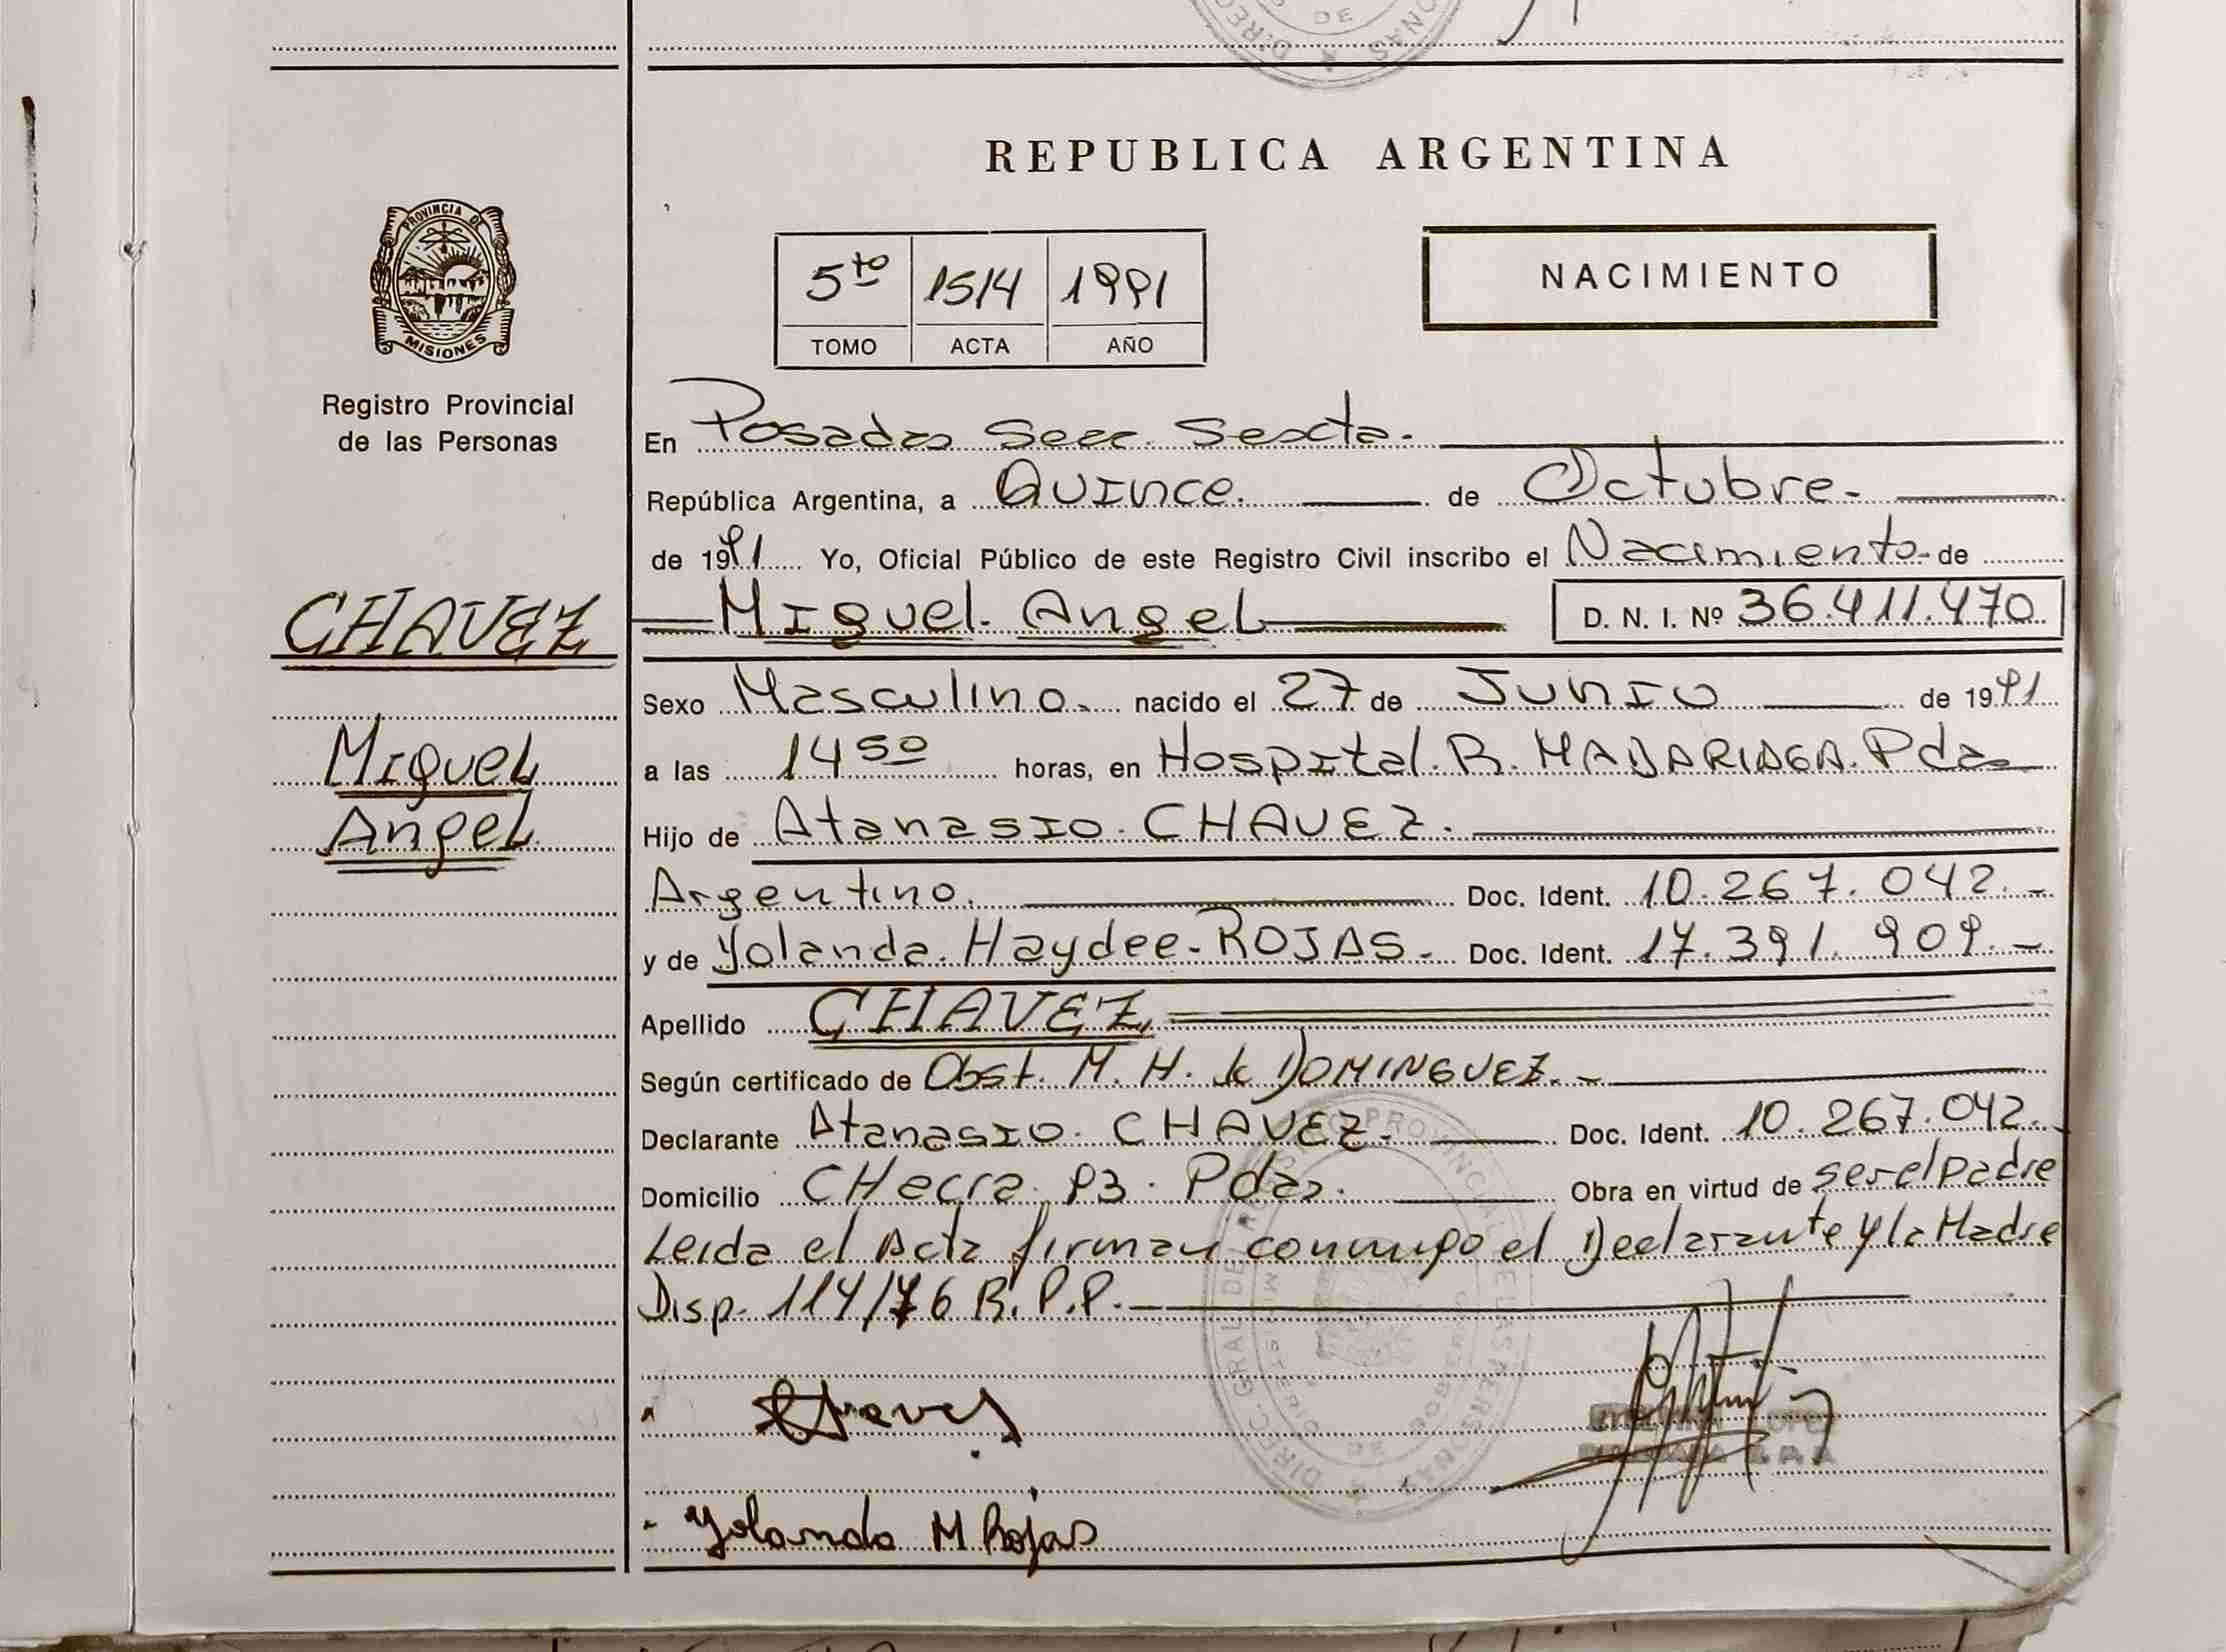 DE
REPUBLICA ARGENTINA
PROVINCIA DE
MISIONES
Registro Provincial
de las Personas
5to 1514 1991
TOMO ACTA AÑO
NACIMIENTO
En Posadas Secc. Sexta.
República Argentina, a Quince. de Octubre.
de 1991 Yo, Oficial Público de este Registro Civil inscribo el Nacimiento de
CHAVEZ
Miguel. Angel
D. N. I. Nº 36.411.470
Sexo Masculino. nacido el 27 de Junio de 1991
Miguel
a las 14 50 horas, en Hospital. R. MADARIAGA. Pdas
Angel
Hijo de Atanasio. CHAVEZ.
Argentino. Doc. Ident. 10.267.042.-
y de Yolanda. Haydee. ROJAS.- Doc. Ident. 17.391.909.-
Apellido CHAVEZ,
Según certificado de Obst. M. H. de DOMINGUEZ.-
Declarante Atanasio. CHAVEZ. Doc. Ident. 10.267.042.
Domicilio CHacra. 93. Pdas. Obra en virtud de ser el padre
Leida el Acta firman conmigo el Declarante y la Madre
Disp. 114/76 R.P.P.
DIREC. GRAL DE REGISTRO PROVINCIAL DE LAS PERSONAS
MINISTERIO DE GOBIERNO
Chavez
Yolanda M Rojas